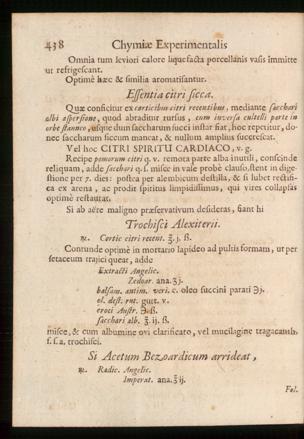 438 Chymiæ Experimentalis
Omnia tum leviori calore liquefacta porcellanis vasis immitte
ut refrigescant.
Optimè hæc & similia aromatisantur.
Essentia citri sicca.
Quæ conficitur ex corticibus citri recentibus, mediante sacchari
albi aspersione, quod abraditur rursus, cum inversa cultelli parte in
orbe stanneo, usque dum saccharum succi instar fiat, hoc repetitur, do-
nec saccharum siccum maneat, & nullum amplius succrescat.
Vel hoc CITRI SPIRITU CARDIACO, v. g.
Recipe pomorum citri q. v. remota parte alba inutili, conscinde
reliquam, adde sacchari q. s. misce in vale probè clauso, stent in dige-
stione per 7. dies: postea per alembicum destilla, & si lubet rectifi-
ca ex arena, ac prodit spiritus limpidissimus, qui vires collapsas
optimè restaurat.
Si ab aëre maligno præservativum desideras, fiant hi
Trochisci Alexiterii.
℞. Cortic citri recent. ℥. j. ß.
Contunde optimè in mortario lapideo ad pultis formam, ut per
setaceum trajici queat, adde
Extracti Angelic.
Zedoar. ana. ʒ j.
balsam. antim. veri. c. oleo succini parati ℈j.
ol. dest. rut. gutt. v.
croci Austr. ℈ ß.
sacchari alb. ℥. ij. ß.
misce, & cum albumine ovi clarificato, vel mucilagine tragacanth.
f. s. a. trochisci.
Si Acetum Bezoardicum arrideat,
℞. Radic. Angelic.
Imperat. ana. ℥ ij.